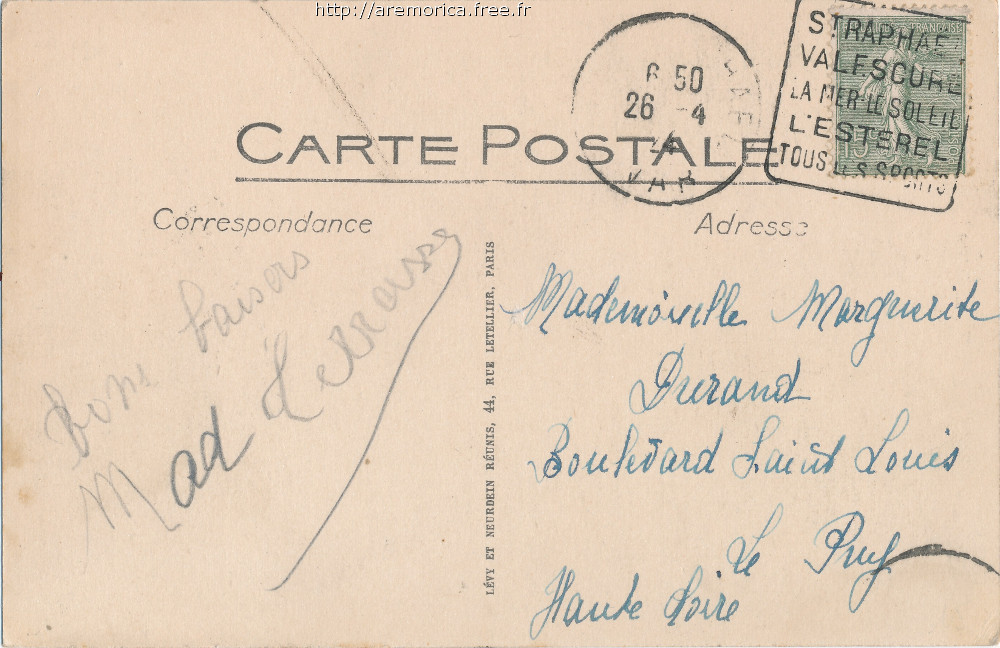 http://aremorica.free.fr
6 50
26 -4
VAR
ST RAPHAEL
VALESCURE
LA MER LE SOLEIL
L'ESTEREL
TOUS LES SPORTS
CARTE POSTALE
Correspondance
Adresse
Bons baisers
Mad
LÉVY ET NEURDEIN RÉUNIS, 44, RUE LETELLIER, PARIS
Mademoiselle Marguerite
Durand
Boulevard Saint Louis
Le Puy
Haute Loire